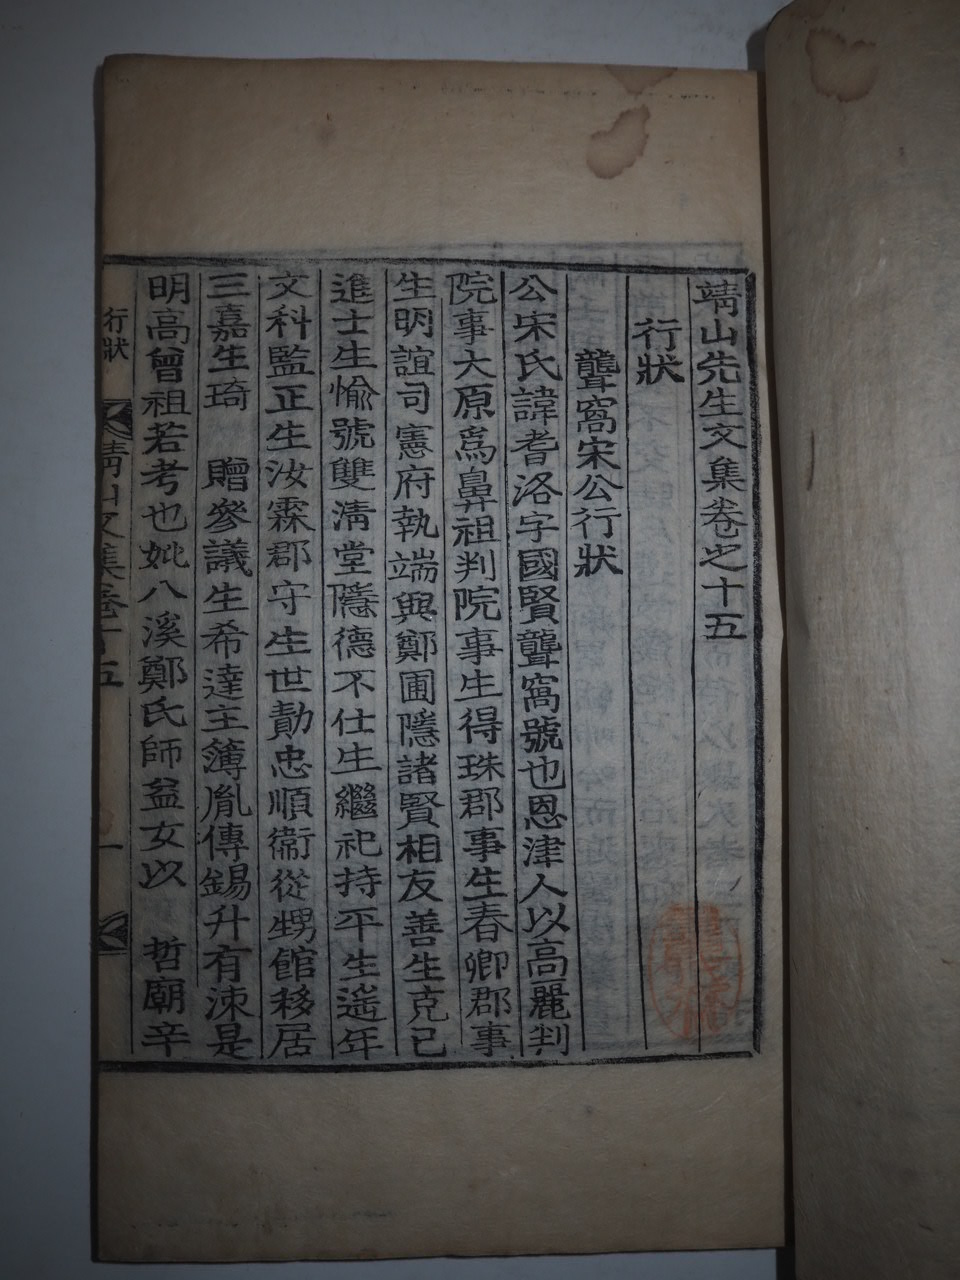 靖山先生文集卷之十五
行狀
聾窩宋公行狀
公宋氏諱耆洛字國賢聾窩號也恩津人以高麗判
院事大原爲鼻祖判院事生得珠郡事生春卿郡事
生明誼司憲府執端與鄭圃隱諸賢相友善生克己
進士生愉號雙淸堂隱德不仕生繼祀持平生遙年
文科監正生汝霖郡守生世勣忠順衛從甥館移居
三嘉生琦 贈參議生希達主簿胤傳錫升有涑是
明高曾祖若考也妣八溪鄭氏師益女以 哲廟辛
行狀 靖山文集卷十五 一